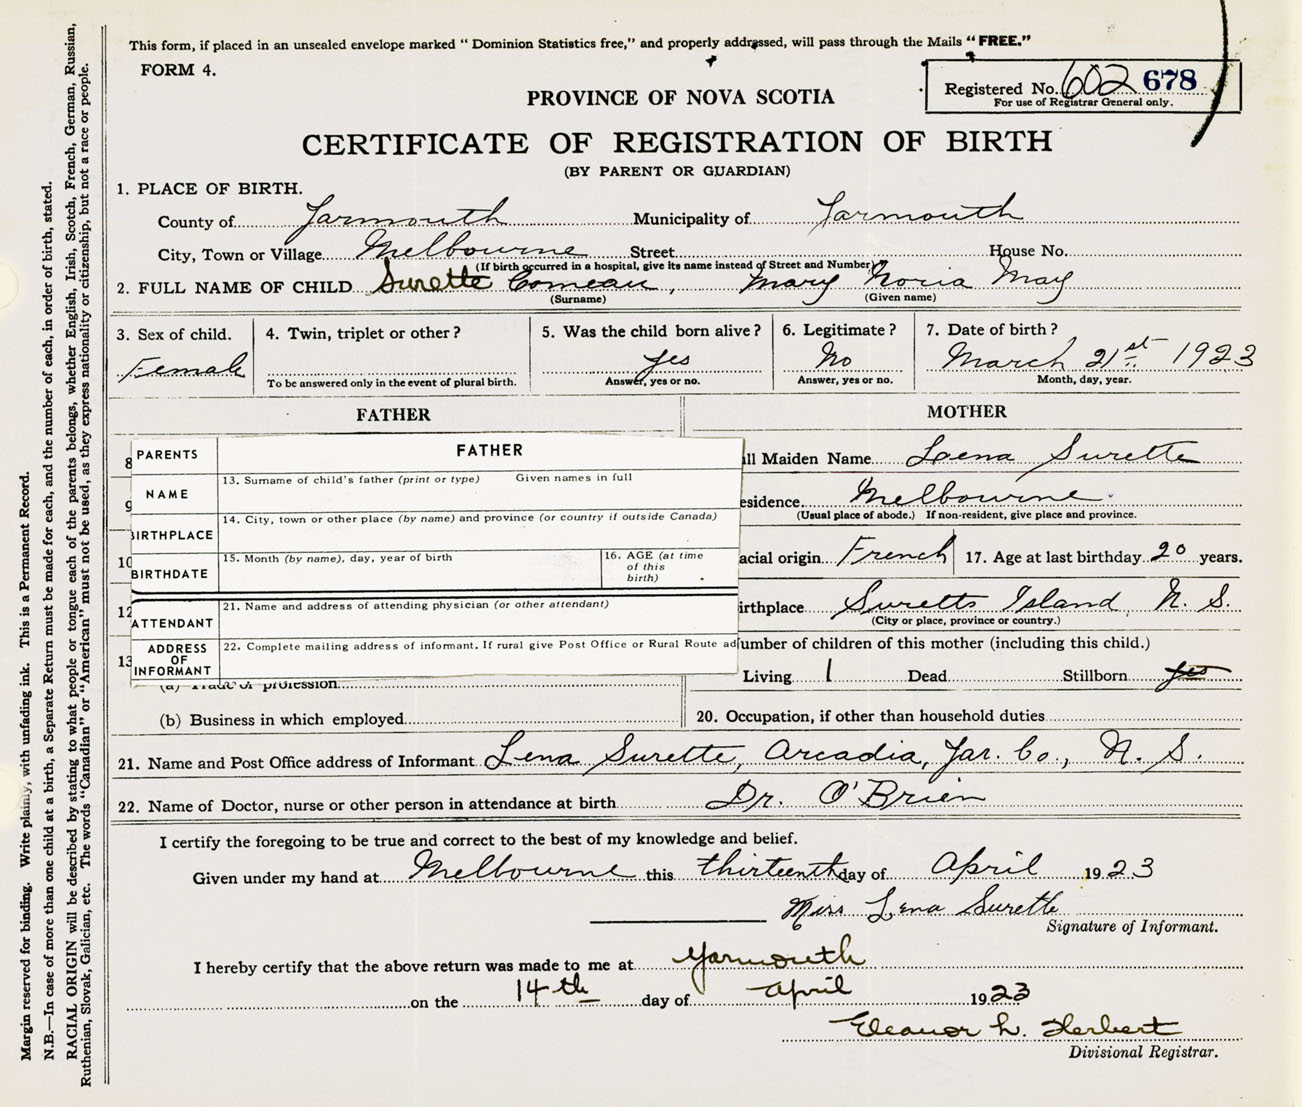 This form, if placed in an unsealed envelope marked “ Dominion Statistics free,” and properly addressed, will pass through the Mails “ FREE.”
FORM 4.
Registered No. 602 678
For use of Registrar General only.
PROVINCE OF NOVA SCOTIA
CERTIFICATE OF REGISTRATION OF BIRTH
(BY PARENT OR GUARDIAN)
1. PLACE OF BIRTH.
County of Yarmouth Municipality of Yarmouth
City, Town or Village Melbourne Street House No.
(If birth occurred in a hospital, give its name instead of Street and Number)
2. FULL NAME OF CHILD Surette Comeau, Mary Noria May
(Surname) (Given name)
3. Sex of child. 4. Twin, triplet or other? 5. Was the child born alive? 6. Legitimate? 7. Date of birth?
Female yes No March 21st 1923
To be answered only in the event of plural birth. Answer, yes or no. Answer, yes or no. Month, day, year.
FATHER MOTHER
8
PARENTS FATHER
ll Maiden Name Loena Surette
NAME 13. Surname of child's father (print or type) Given names in full
9
esidence Melbourne
(Usual place of abode.) If non-resident, give place and province.
BIRTHPLACE 14. City, town or other place (by name) and province (or country if outside Canada)
10
acial origin French 17. Age at last birthday 20 years.
BIRTHDATE 15. Month (by name), day, year of birth 16. AGE (at time of this birth)
12
irthplace Suretts Island, N. S.
(City or place, province or country.)
ATTENDANT 21. Name and address of attending physician (or other attendant)
umber of children of this mother (including this child.)
13
ADDRESS OF INFORMANT 22. Complete mailing address of informant. If rural give Post Office or Rural Route ad
Living 1 Dead Stillborn yes
(a) Trade or profession
(b) Business in which employed 20. Occupation, if other than household duties
21. Name and Post Office address of Informant Lena Surette, Arcadia, Yar. Co., N. S.
22. Name of Doctor, nurse or other person in attendance at birth Dr. O'Brien
I certify the foregoing to be true and correct to the best of my knowledge and belief.
Given under my hand at Melbourne this thirteenth day of April 1923
Miss Lena Surette
Signature of Informant.
I hereby certify that the above return was made to me at Yarmouth
on the 14th day of April 1923
Eleanor L. Herbert
Divisional Registrar.
Margin reserved for binding. Write plainly, with unfading ink. This is a Permanent Record.
N.B.—In case of more than one child at a birth, a Separate Return must be made for each, and the number of each, in order of birth, stated.
RACIAL ORIGIN will be described by stating to what people or tongue each of the parents belongs, whether English, Irish, Scotch, French, German, Russian,
Ruthenian, Slovak, Galician, etc. The words “Canadian” or “American” must not be used, as they express nationality or citizenship, but not a race or people.